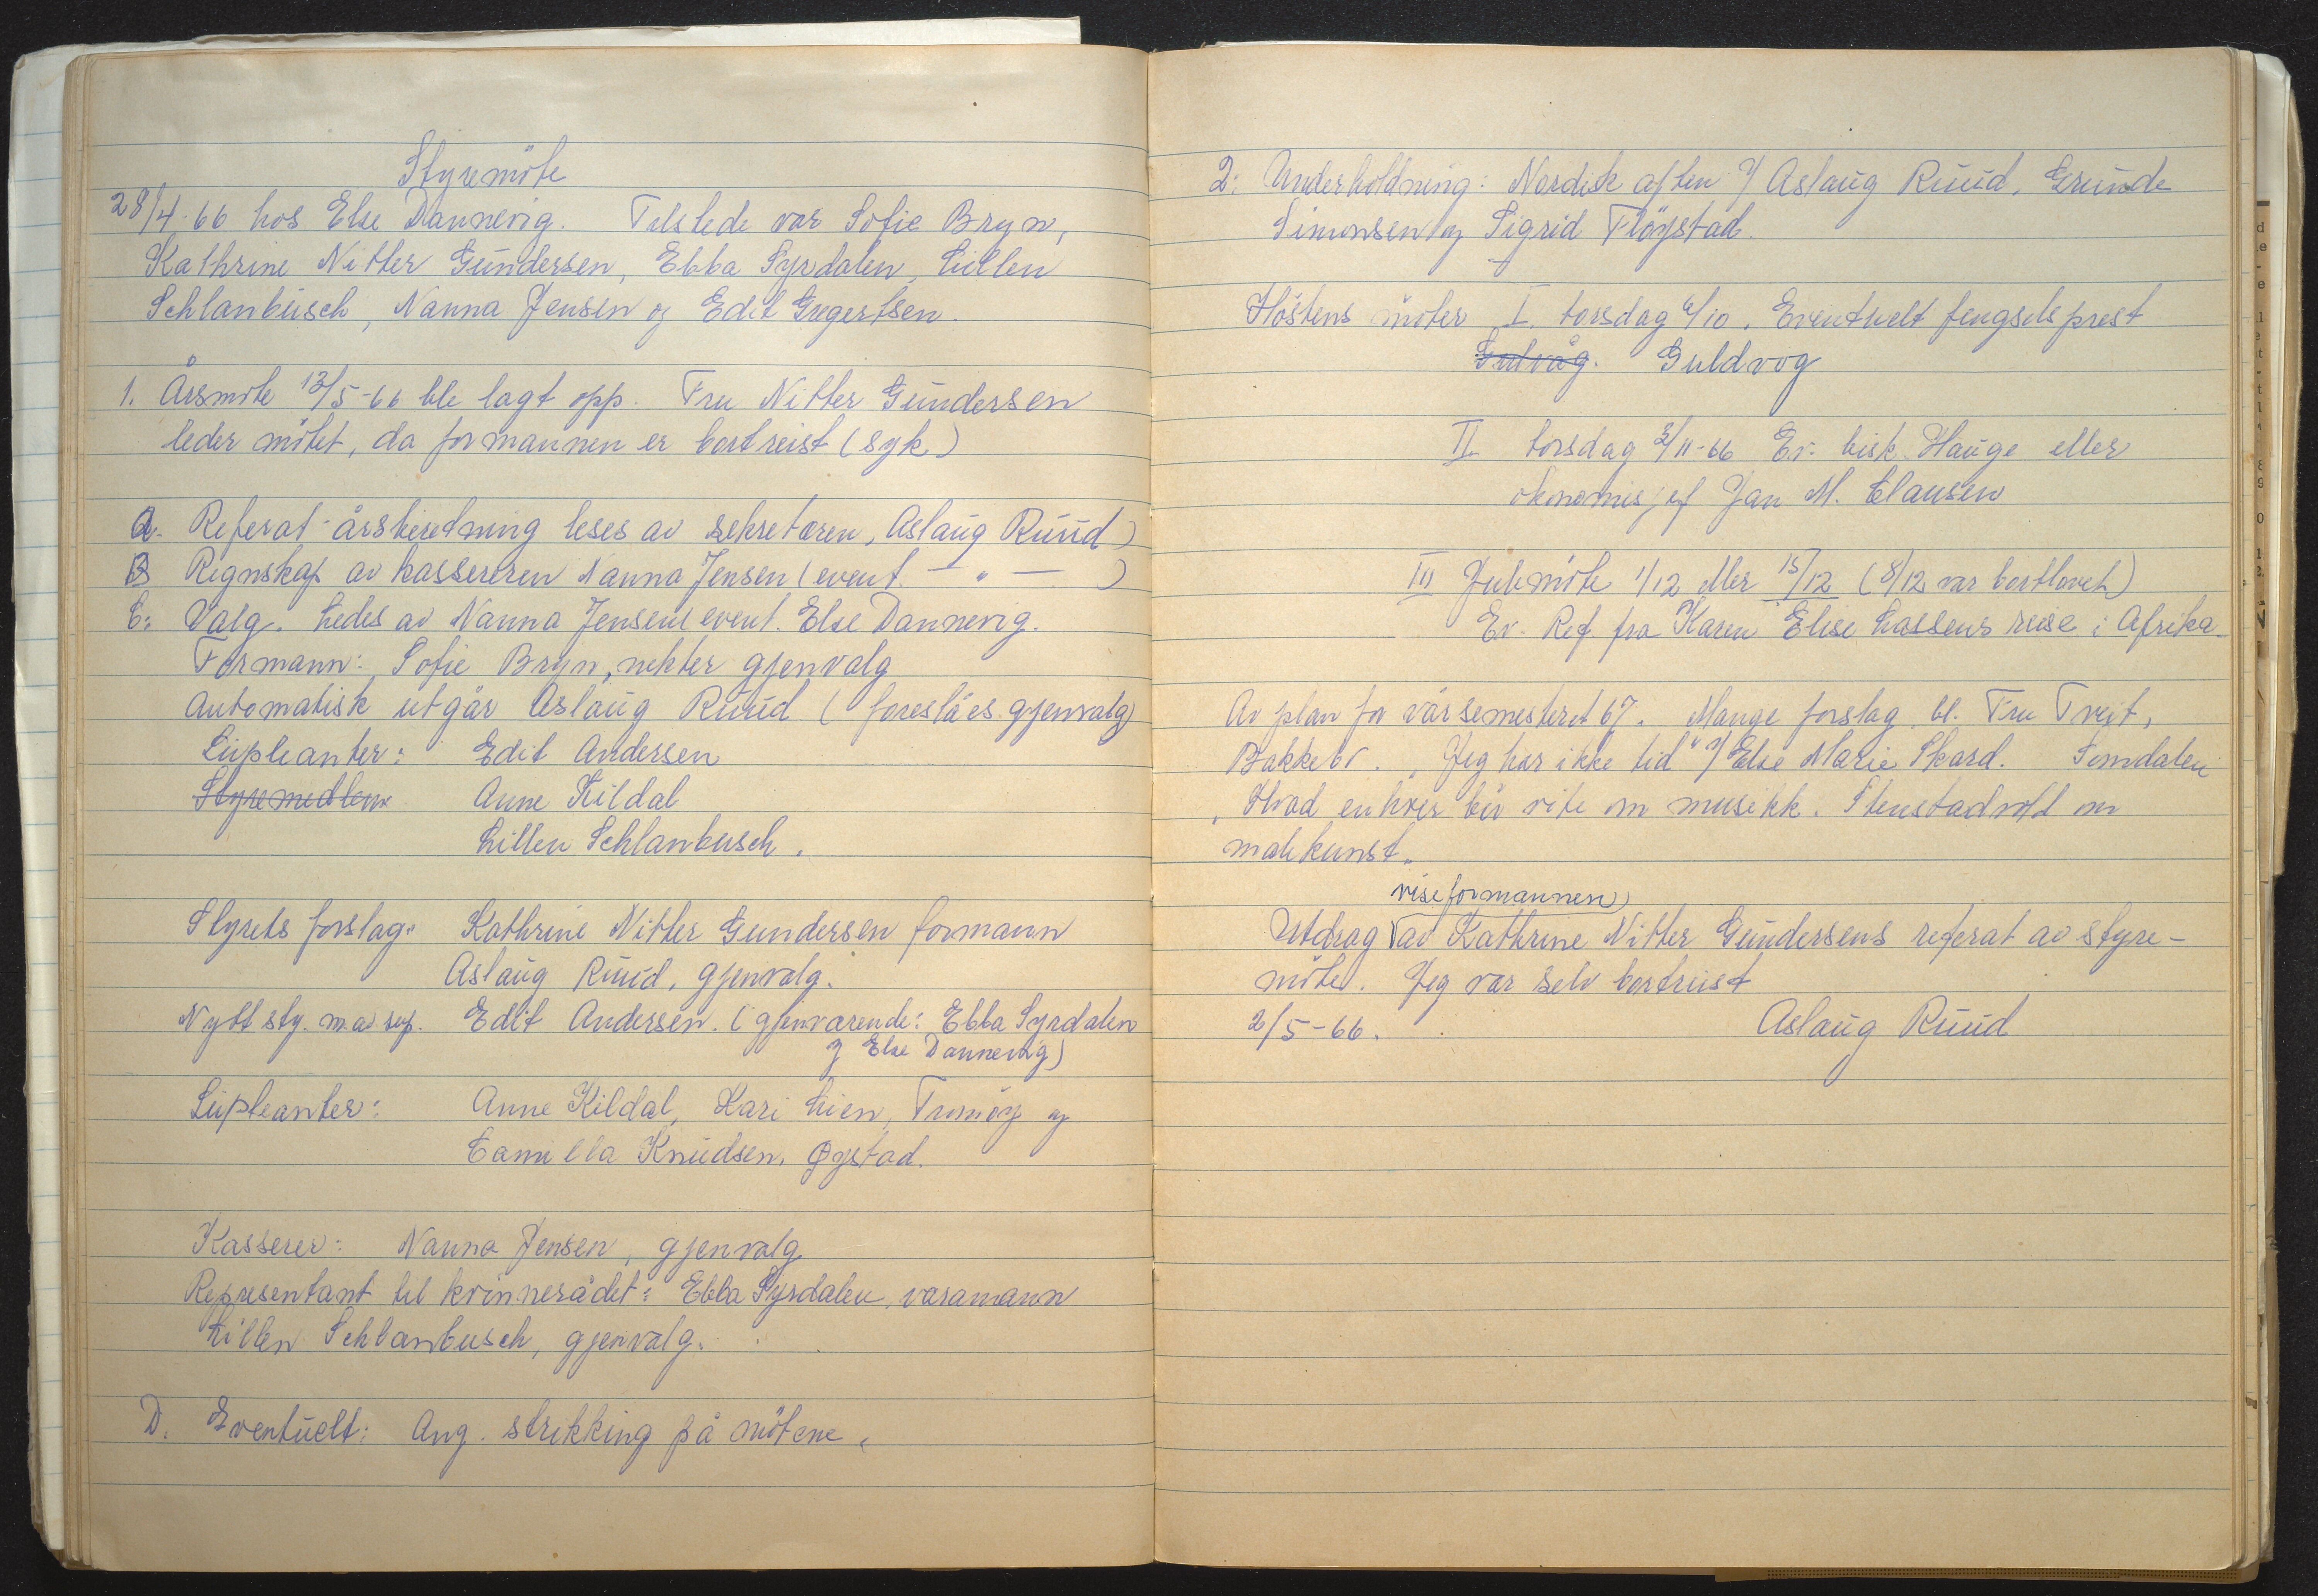 Styremöte
28/4-66 hos Else Dannevig. Tilstede var Sofie Bryn,
Kathrine Nitter Gundersen, Ebba Syrdalen, Lillen
Schlanbusch, Nanna Jensen og Edit Gregertsen.
1. Årsmöte 12/5-66 ble lagt opp. Fru Nitter Gundersen
leder mötet, da formannen er bortreist (syk)
A. Referat - årsberetning leses av sekretæren, Aslaug Ruud)
B Regnskap av kassereren Nanna Jensen (event. — " — )
C: Valg. Ledes av Nanna Jensen event. Else Dannevig.
Formann: Sofie Bryn, nekter gjenvalg
Automatisk utgår Aslaug Ruud (foreslåes gjenvalg)
Supleanter: Edit Andersen
Styremedlem Anne Kildal
Lillen Schlanbusch.
Styrets forslag: Kathrine Nitter Gundersen formann
Aslaug Ruud, gjenvalg.
Nytt sty. m. Edit Andersen. (gjenværende: Ebba Syrdalen
og Else Dannevig)
Supleanter: Anne Kildal, Kari Lien, Tromöy og
Camilla Knudsen, Øystad.
Kasserer: Nanna Jensen, gjenvalg
Representant til kvinnerådet: Ebba Syrdalen, varamann
Lillen Schlanbusch, gjenvalg.
D. Eventuelt: Ang. strikking på mötene.
2: Underholdning: Nordisk aften v/ Aslaug Ruud, Grunde
Simonsen og Sigrid Flöystad.
Höstens möter I. torsdag 6/10. Eventuelt fengselsprest
Gulvåg. Guldvog
II torsdag 3/11-66 Ev. bisk. Hauge eller
ökonomisjef Jan M. Clausen
III Julemöte 1/12 eller 15/12 (8/12 var bortlovet)
Ev. Ref. fra Karen Elise Lassens reise i Afrika
Av plan for vårsemesteret 67. Mange forslag bl. Fru Tveit,
"Jeg har ikke tid" v/ Else Marie Skard. Tomdalen
"Hvad enhver bör vite om musikk. Stenstadvold om
malekunst"
viseformannen
Utdrag av Kathrine Nitter Gundersens referat av styre-
möte. Jeg var selv bortreist
2/5-66. Aslaug Ruud